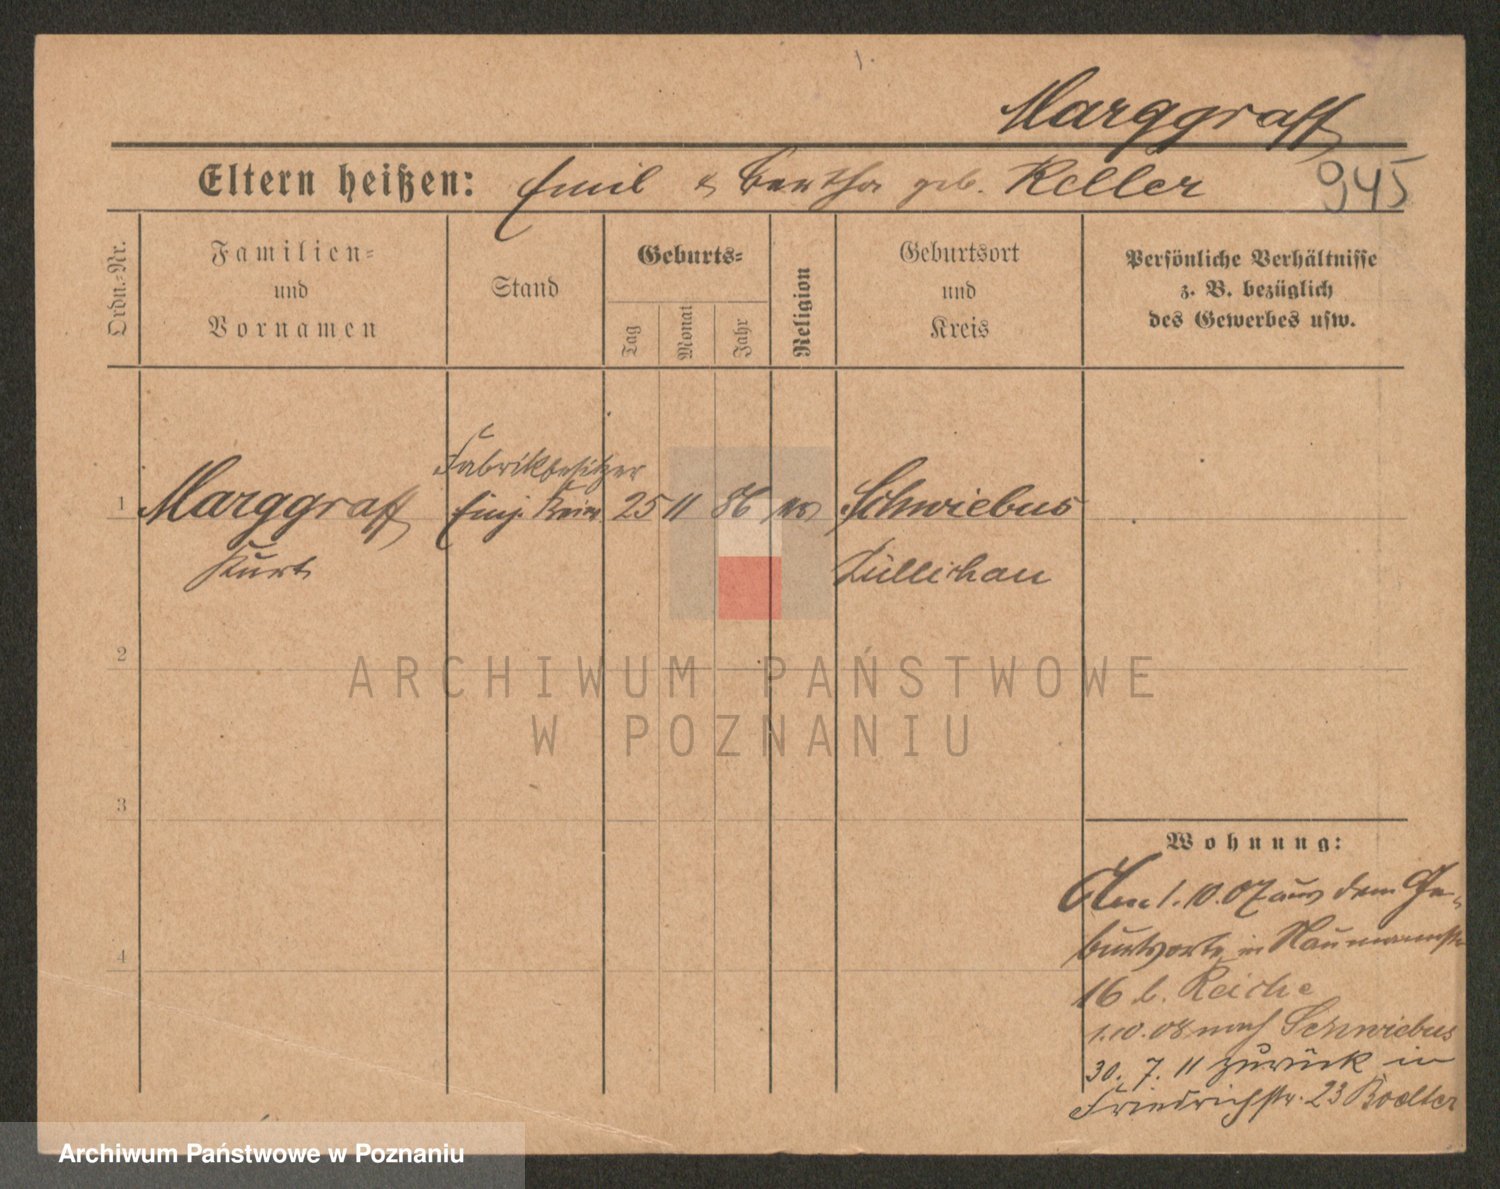 Marggraff
Eltern heißen: Emil & Bertha geb. Keller
945
Ordn.-Nr.
Familien-
und
Vornamen
Stand
Geburts-
Tag
Monat
Jahr
Religion
Geburtsort
und
Kreis
Persönliche Verhältnisse
z. B. bezüglich
des Gewerbes usw.
Fabrikbesitzer
1 Marggraff Einj. 25 11 86 Schwiebus
Kurt Züllichau
2
3
4
Wohnung:
Am 1.10.07 aus dem Ge-
burtsorte in Naumannstr
16 b. Reiche
1.10.08 nach Schwiebus
30. 7. 11 zurück in
Friedrichstr. 23 Boelter
ARCHIWUM PAŃSTWOWE
W POZNANIU
Archiwum Państwowe w Poznaniu